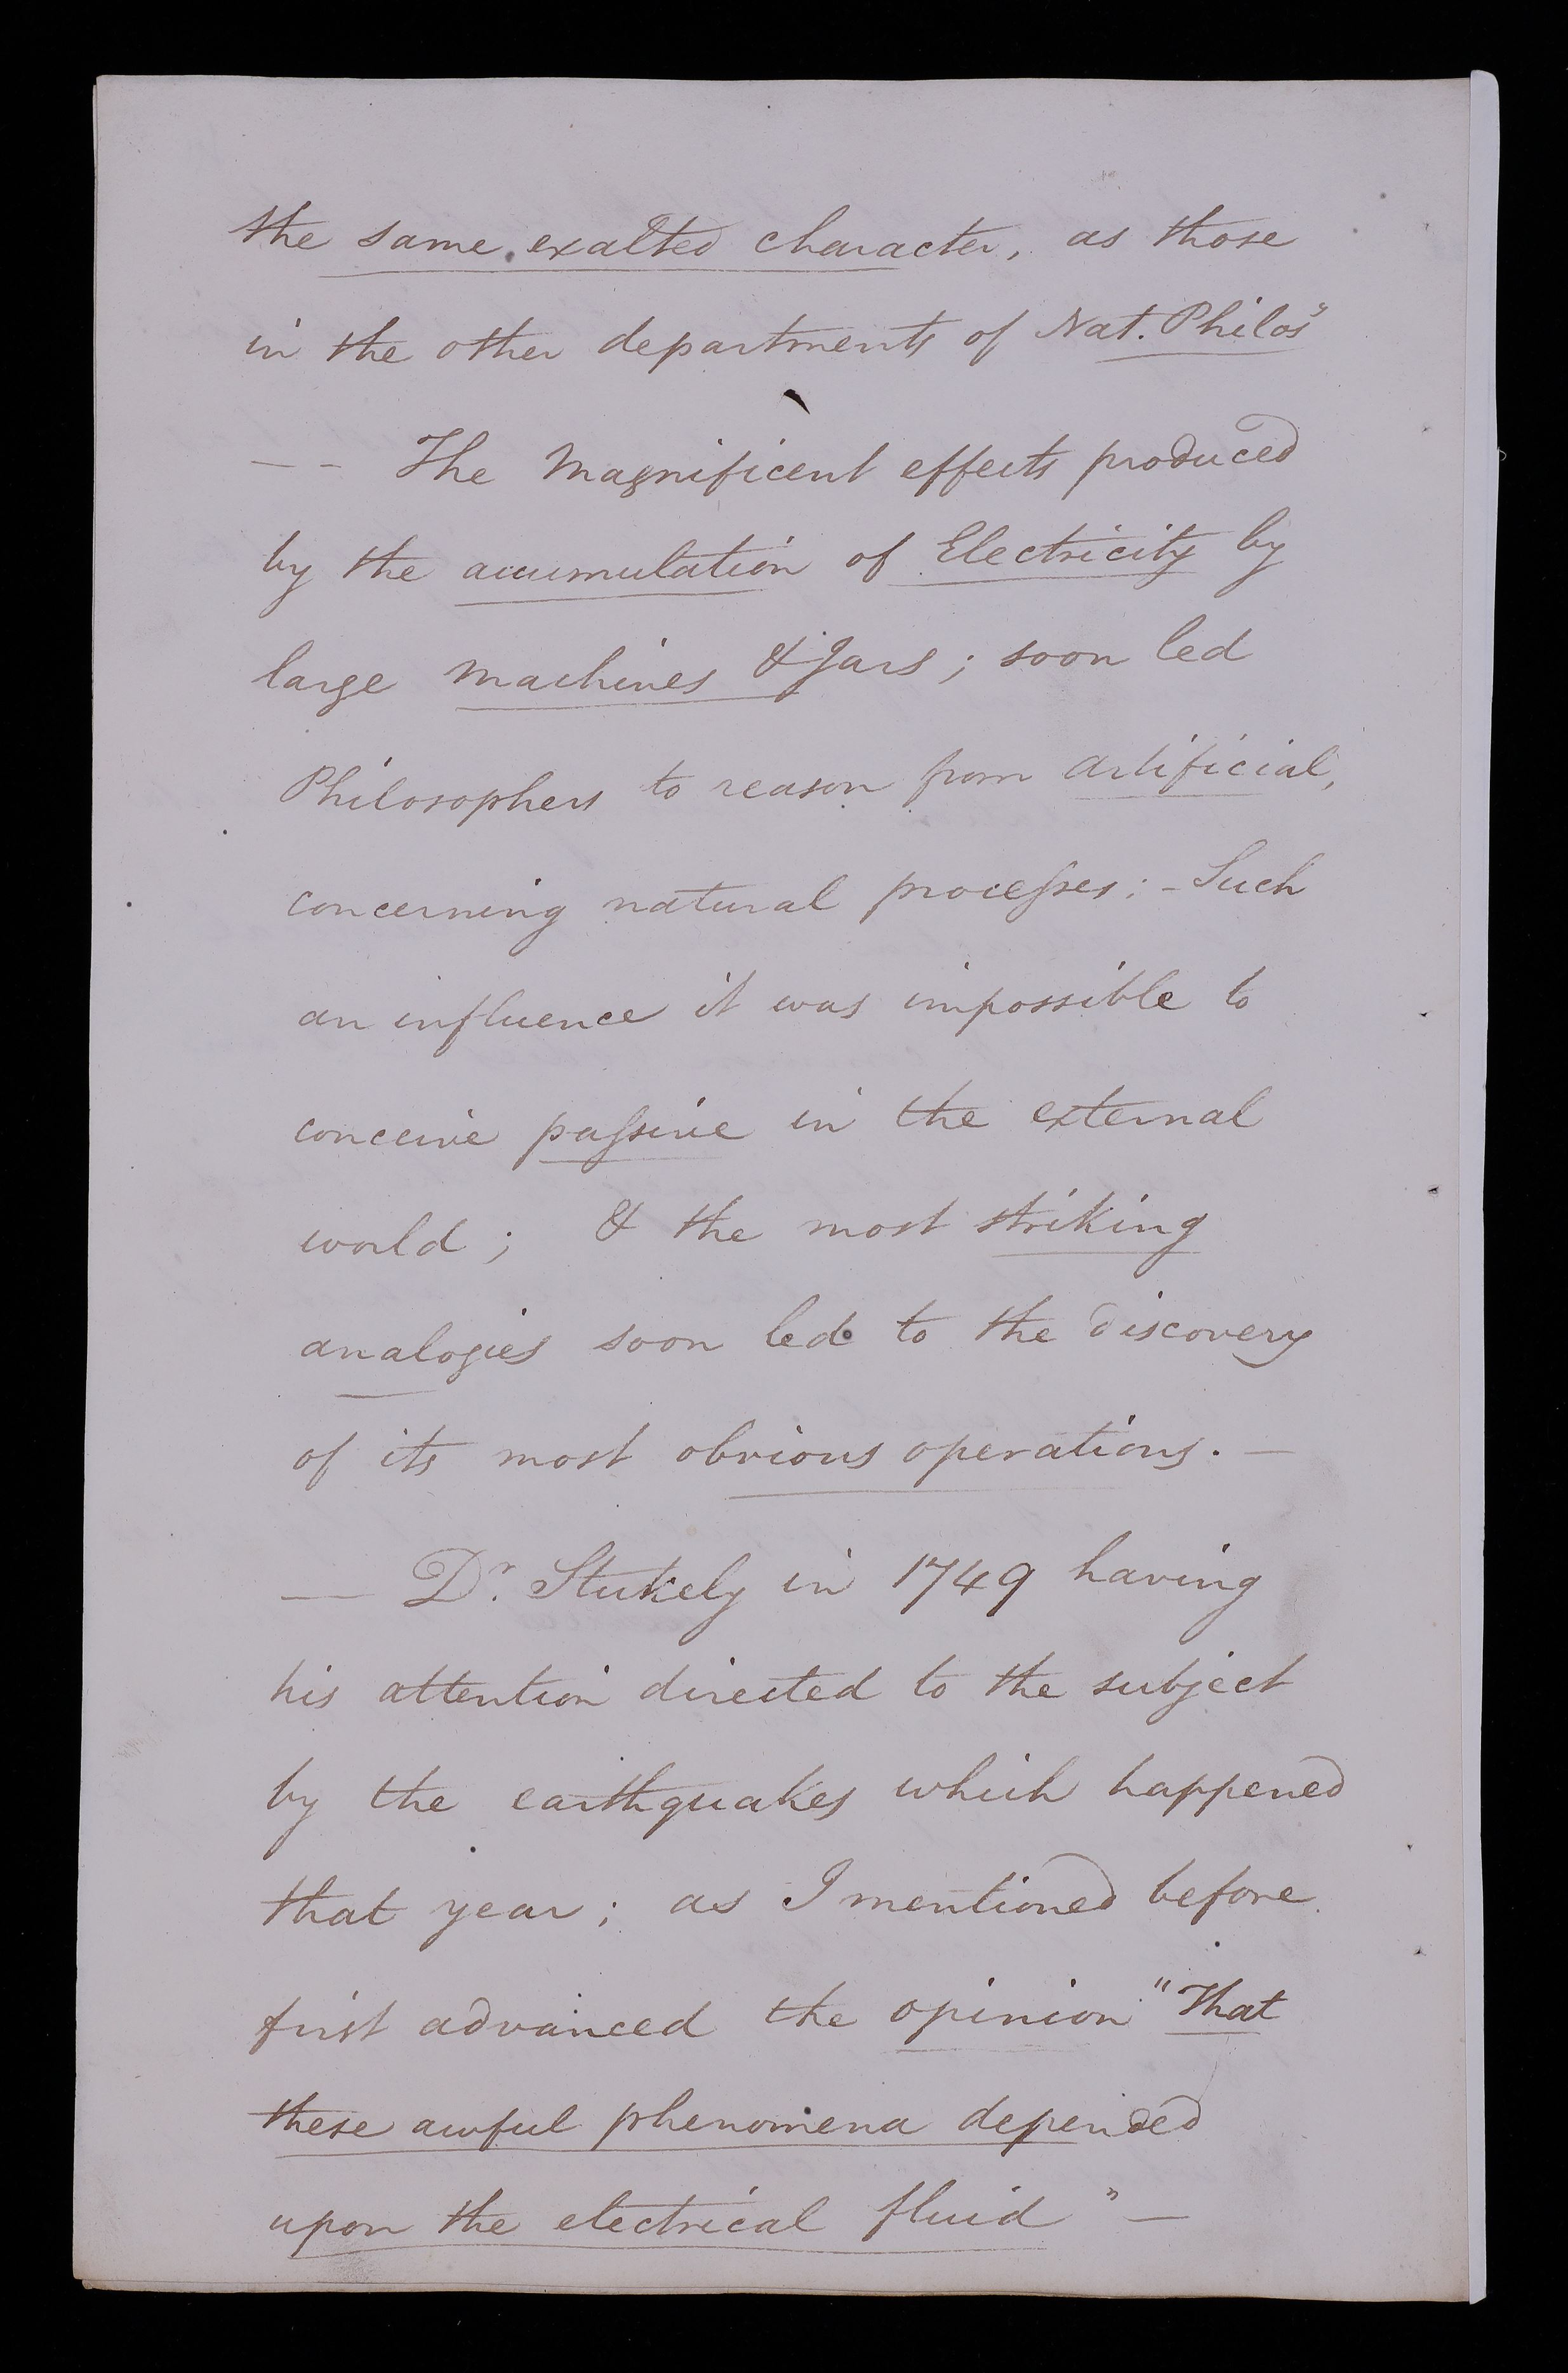 the same exalted character, as those
in the other departments of Nat. Philosy
-- The Magnificent effects produced
by the accumulation of Electricity by
large machines & Jars; soon led
Philosophers to reason from artificial,
concerning natural processes: - Such
an influence it was impossible to
conceive passive in the external
world; & the most striking
analogies soon led to the discovery
of its most obvious operations. —
— Dr. Stukely in 1749 having
his attention directed to the subject
by the earthquakes which happened
that year; as I mentioned before
first advanced the opinion "That
these awful phenomena depended
upon the electrical fluid" —